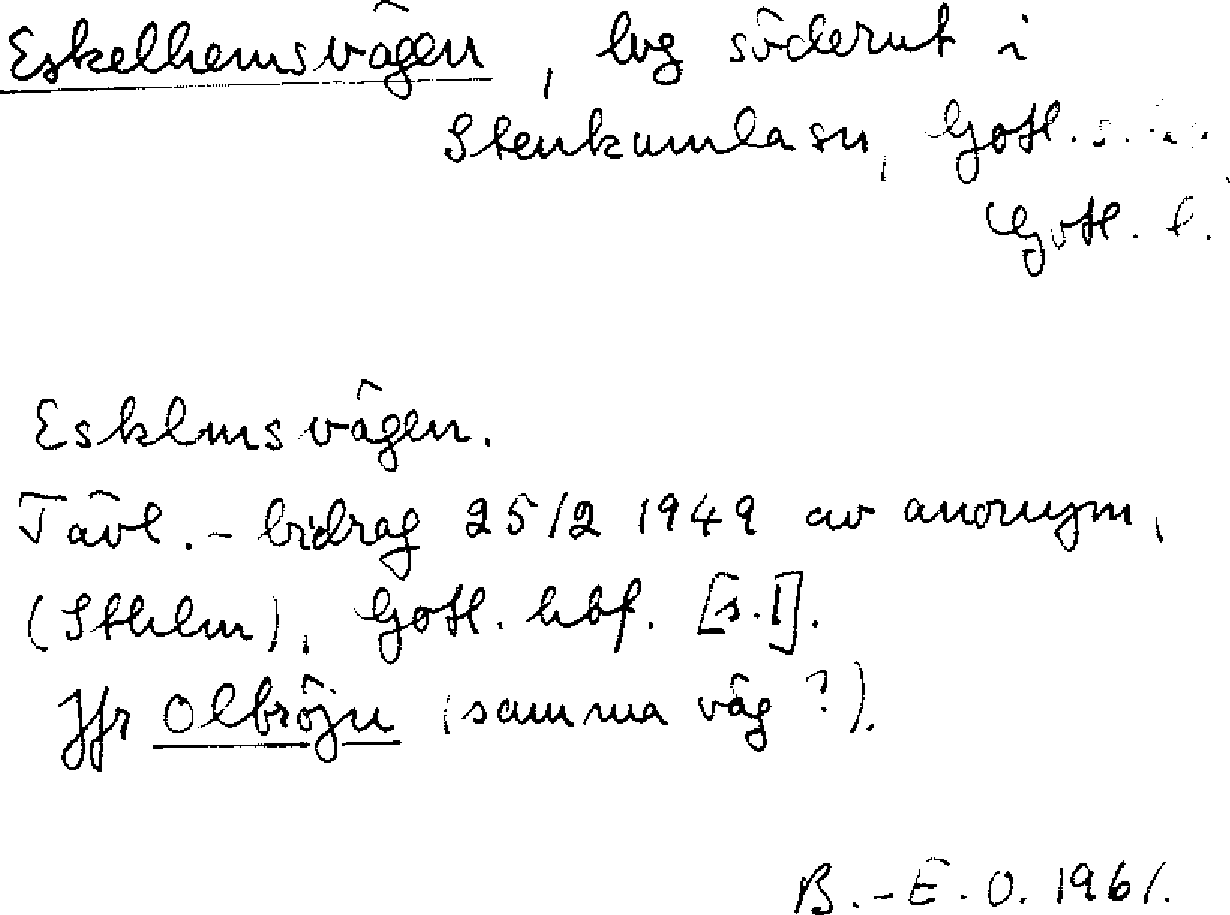 Eskelhemsvägen, lvg söderut i
Stenkumla sn, Gotl. s. hd.
Gotl. l.
Esklms vägen.
Tävl.-bidrag 25/2 1949 av anonym,
(Sthlm), Gotl. hbf. [s.1].
Jfr Olbröju (samma väg?).
B.-E. O. 1961.